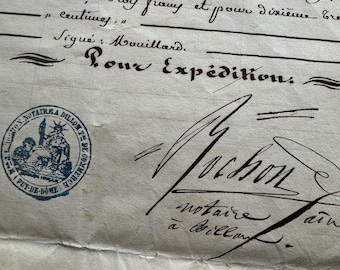 francs et pour dixième
"centimes."
Signé: Mouillard.
Pour Expédition.
NOTAIRE A BILLOM
PUY-DE-DÔME
Rochon
notaire
à Billom